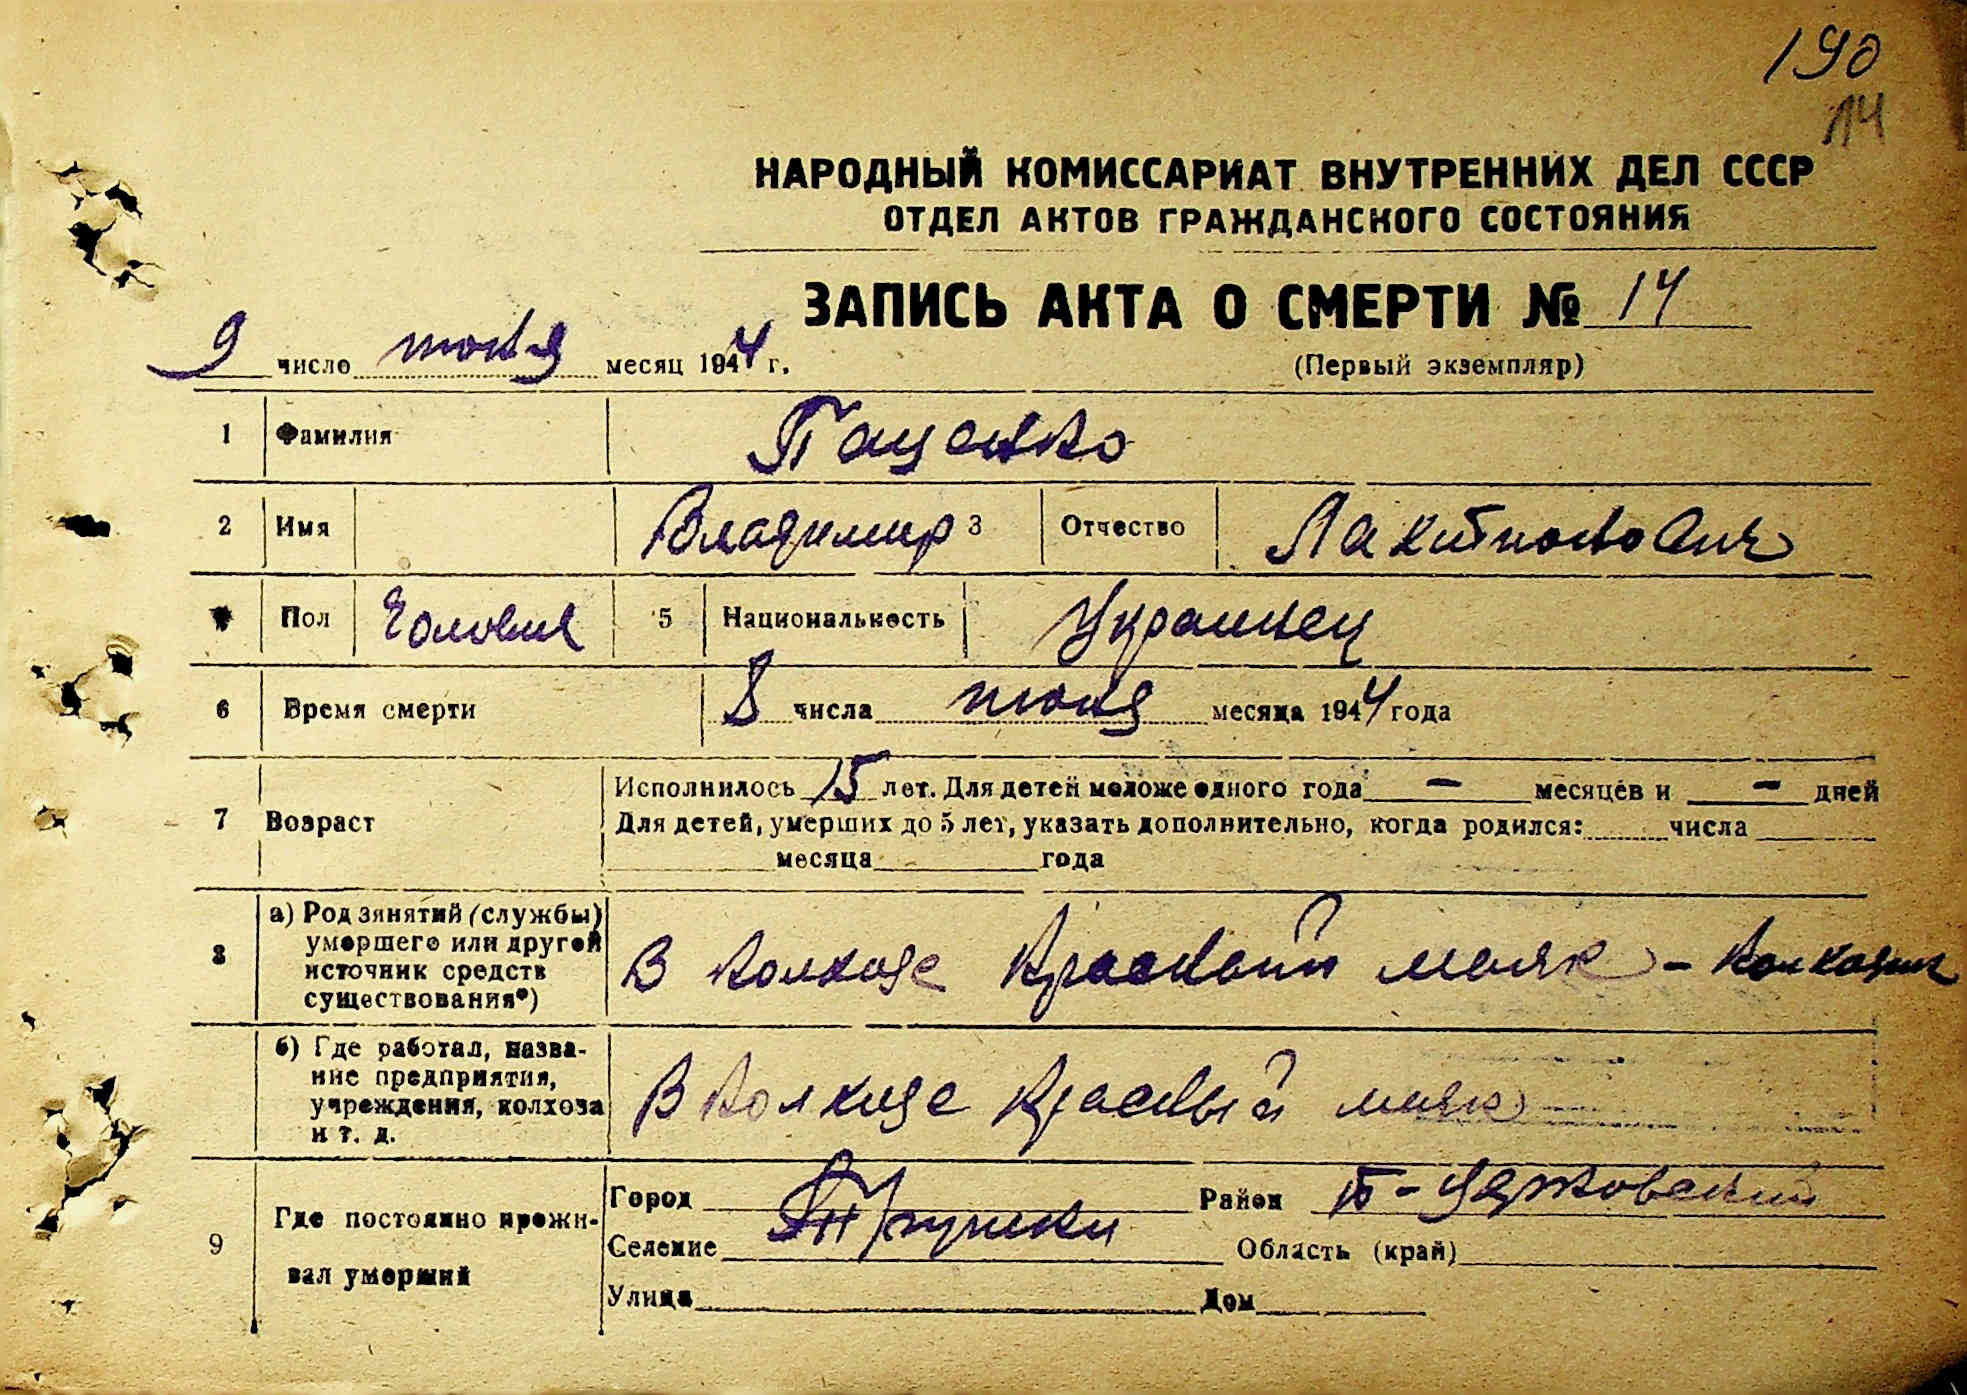 190
14
НАРОДНЫЙ КОМИССАРИАТ ВНУТРЕННИХ ДЕЛ СССР
ОТДЕЛ АКТОВ ГРАЖДАНСКОГО СОСТОЯНИЯ
ЗАПИСЬ АКТА О СМЕРТИ № 14
9 число июня месяц 1944 г.
(Первый экземпляр)
1 Фамилия Пащенко
2 Имя Владимир 3 Отчество
Пол 5 Национальность Украинец
6 Время смерти 8 числа июня месяца 1944 года
7 Возраст
Исполнилось 15 лет. Для детей моложе одного года - месяцев и - дней
Для детей, умерших до 5 лет, указать дополнительно, когда родился: числа
месяца года
8 а) Род занятий (службы)
умершего или другой
источник средств
существования*)
В колхозе Красный маяк - колхозник
б) Где работал, назва-
ние предприятия,
учреждения, колхоза
и т. д.
В колхозе Красный маяк
9 Где постоянно прожи-
вал умерший
Город Район Б-Церковский
Селение Область (край)
Улица Дом